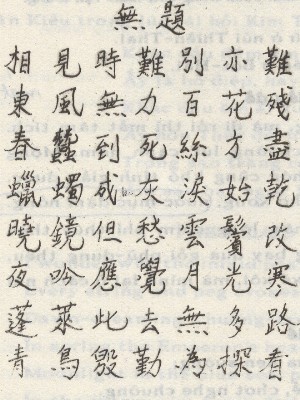 無題
相見時難別亦難
東風無力百花殘
春蠶到死絲方盡
蠟燭成灰淚始乾
曉鏡但愁雲鬢改
夜吟應覺月光寒
蓬萊此去無多路
青鳥殷勤為探看